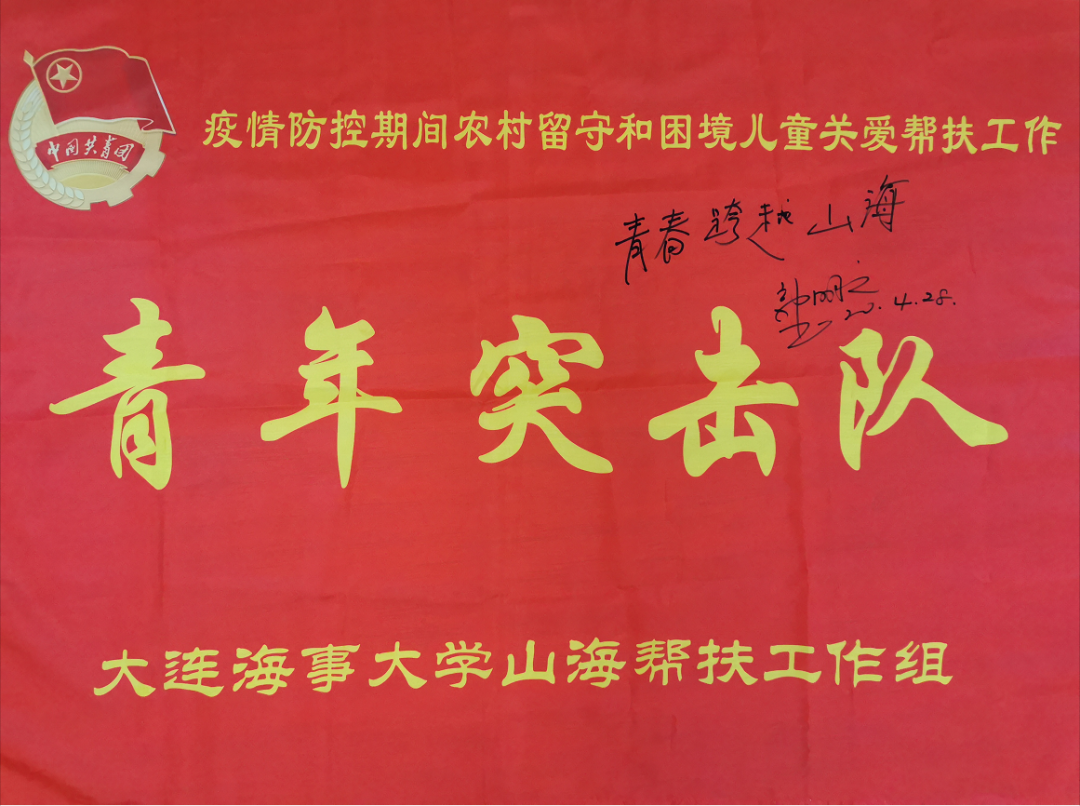 中国共青团
疫情防控期间农村留守和困境儿童关爱帮扶工作
青春跨越山海
20.4.28.
青年突击队
大连海事大学山海帮扶工作组